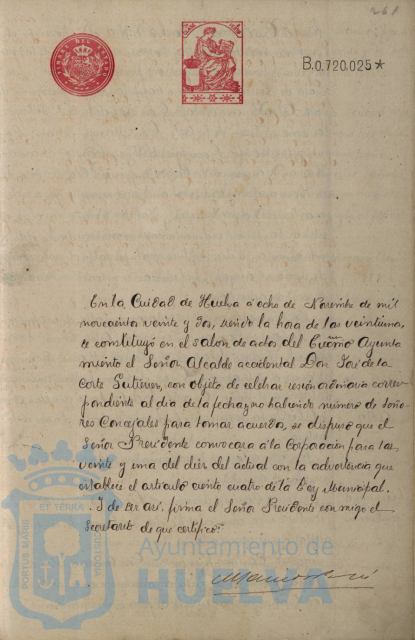 261
TIMBRE DEL ESTADO
B.0.720.025*
En la Ciudad de Huelva á ocho de Noviembre de mil
novecientos veinte y dos, siendo la hora de las veintiuna,
se constituyó en el salon de actos del Excmo Ayunta
miento el Señor Alcalde accidental Don José de la
Corte Gutierrez, con objeto de celebrar sesión ordinaria corres
pondiente al dia de la fecha y no habiendo número de Seño-
res Concejales para tomar acuerdo, se dispuso que el
Señor Presidente convocara á la Corporación para las
veinte y una del diez del actual con la advertencia que
establece el artículo ciento cuatro de la Ley Municipal.
Y de ser así, firma el Señor Presidente conmigo el
Secretario de que certifico:
PORTUS MARIS ET TERRÆ CUSTODIA
Ayuntamiento de
HUELVA